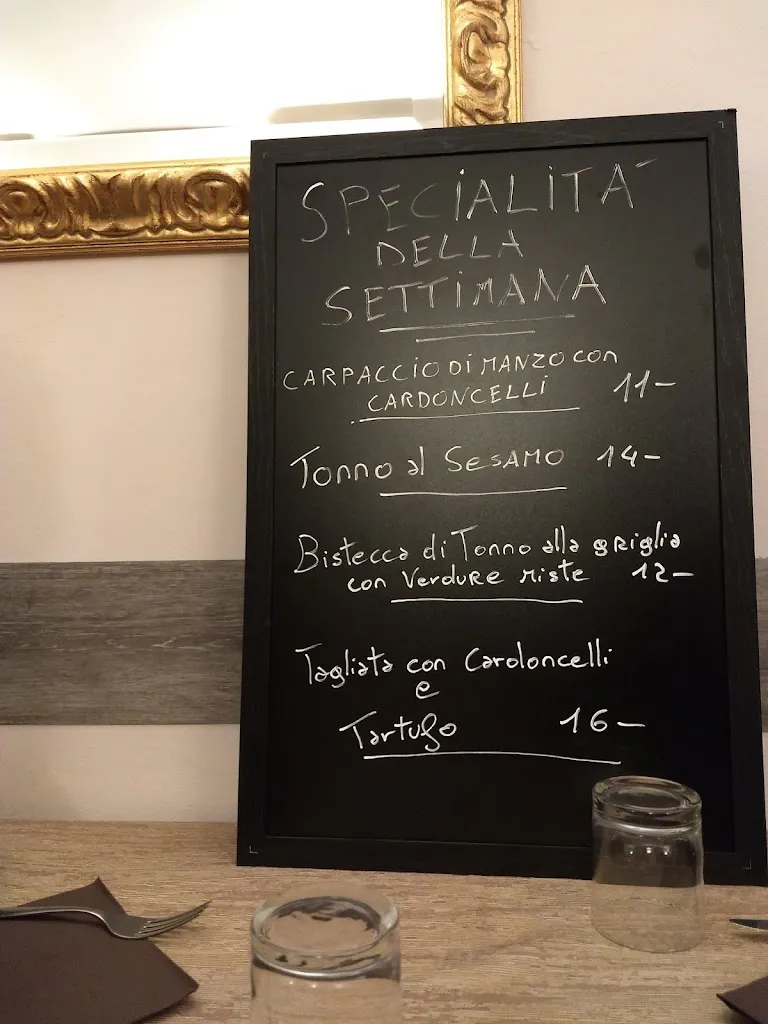 SPECIALITA'
DELLA
SETTIMANA
CARPACCIO DI MANZO con
CARDONCELLI 11-
Tonno al SESAMO 14-
Bistecca di Tonno alla griglia
con Verdure miste 12-
Tagliata con Cardoncelli
e
Tartufo 16-